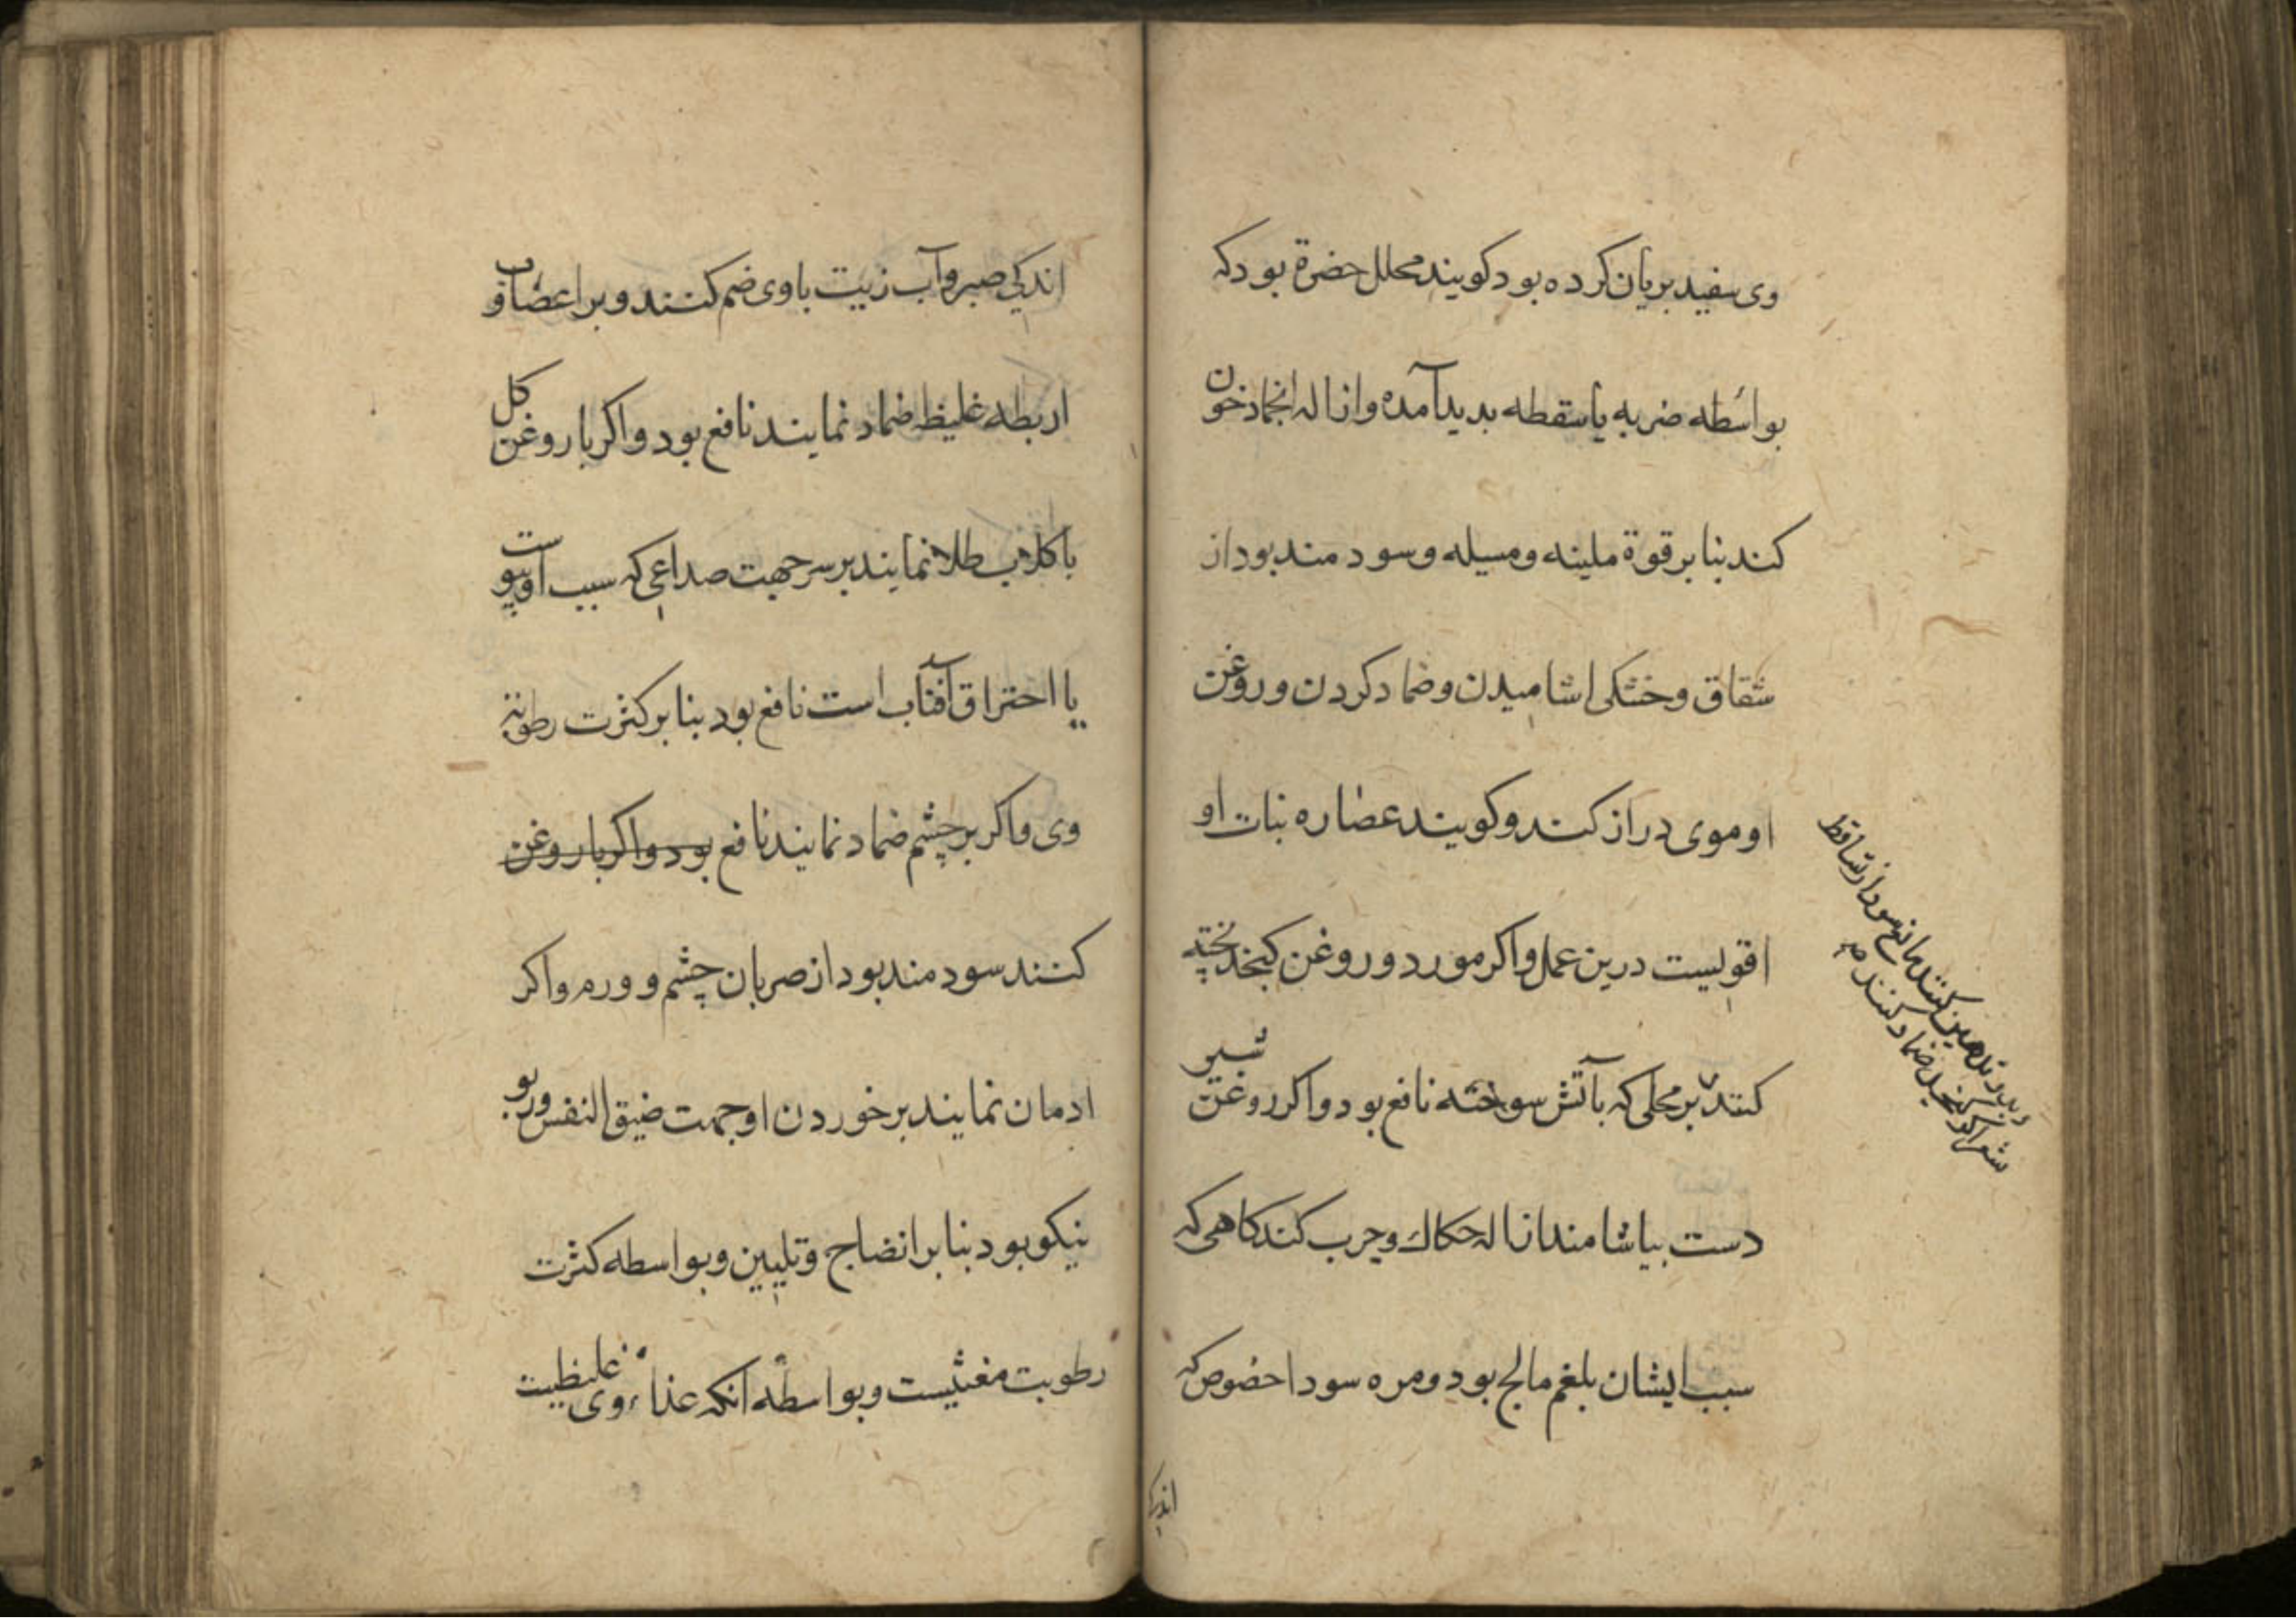 وی سفید بریان کرده بود کویند محلل حضرة بود که
بواسطه ضربه یا سقطه بدید آمده وازاله انجماد خون
کند بنا بر قوة ملینه ومسیله وسود مند بود از
شقاق وخشکی اشامیدن وضماد کردن وروغن
او موی دراز کند وکویند عصاره نبات او
اقویست درین عمل واکر مورد وروغن کنجد پخته
کنند بر محلی که بآتش سوخته نافع بود واکر روغن شیر
دست بیاشامند ازاله حکاك وجرب کند کاهی که
سبب ایشان بلغم مالح بود ومره سودا خصوص که
تدهین کنند مانع بود از تساقط
شعر اکر کنجد ضماد کنند
اندکی
اندکی صبر وآب زیت با وی ضم کنند وبر اعضا و
اربطه غلیظه ضماد نمایند نافع بود واکر با روغن کل
با کلاب طلا نمایند بر سر جهت صداعی که سبب او یبوست
یا احتراق آفتاب است نافع بود بنا بر کثرت رطوبة
وی واکر بر چشم ضماد نمایند نافع بود واکر با روغن
کنند سود مند بود از ضربان چشم و ورم واکر
ادمان نمایند بر خوردن او جهت ضیق النفس وربو
نیکو بود بنا بر انضاج وتلیین وبواسطه کثرت
رطوبت مغثیست وبواسطه آنکه غذاء وی غلیظیت